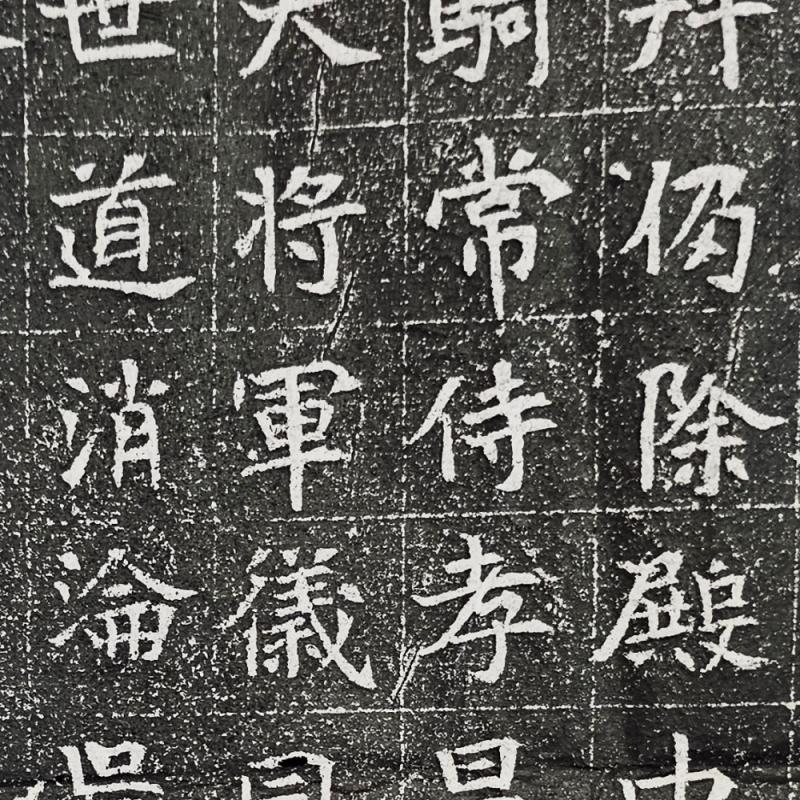 仍除殿中
騎常侍孝昌
大将軍儀同
世道消淪